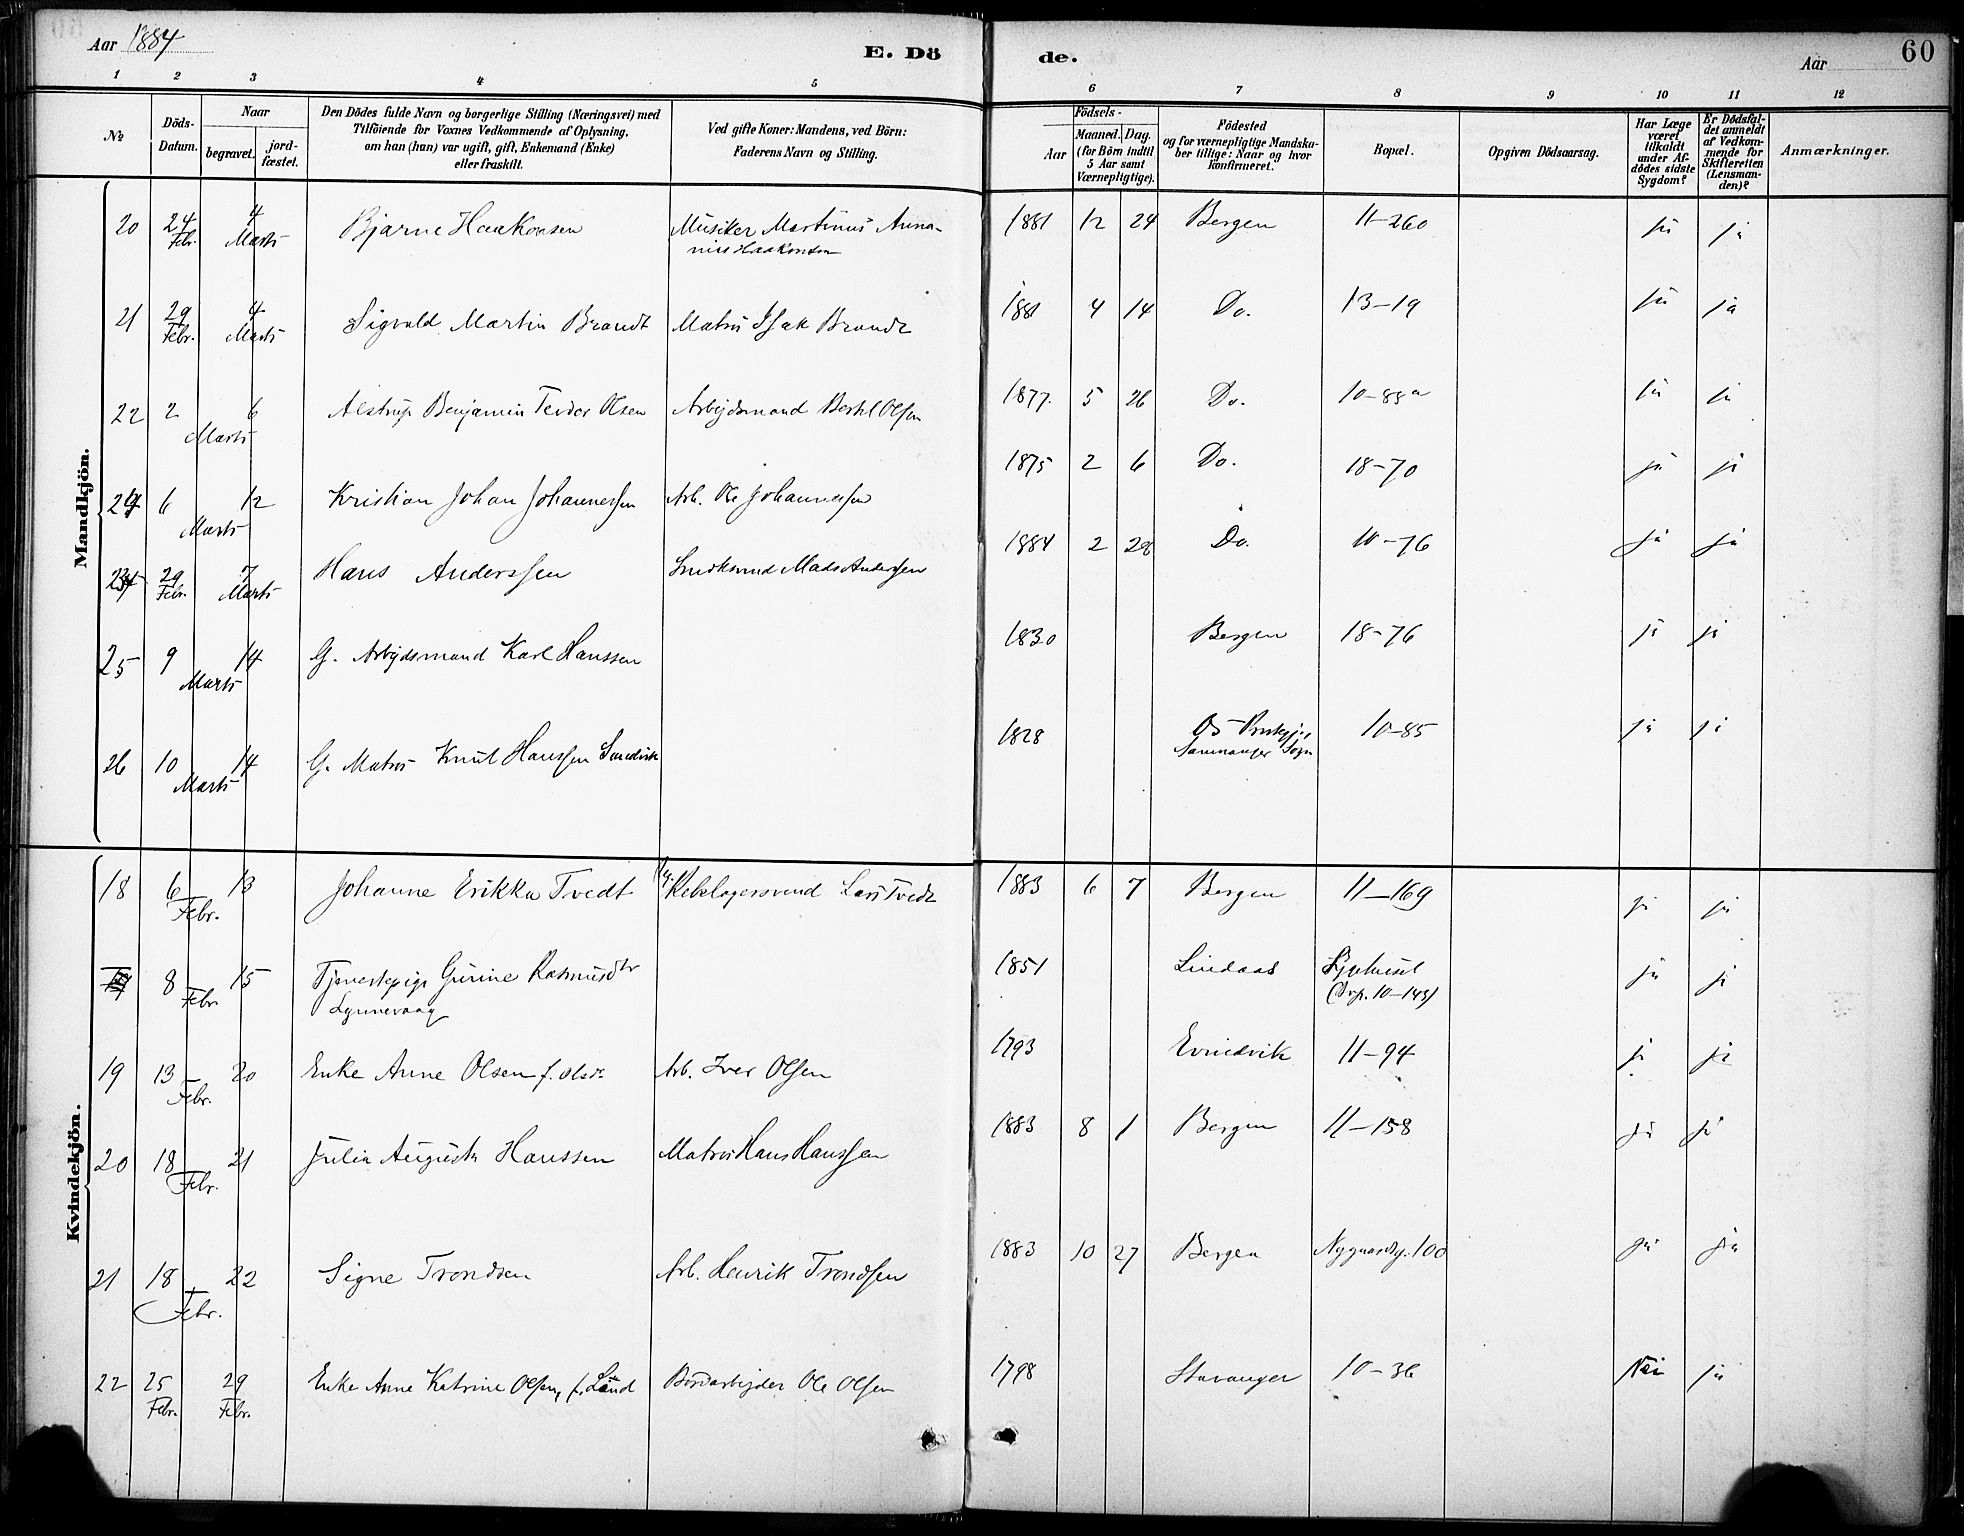 Aar 1884
E. Dö
de.
Aar
60
1 2 3 4 5 6 7 8 9 10 11 12
No
Döds-
Datum.
Naar
begravet.
jord-
fæstet.
Den Dödes fulde Navn og borgerlige Stilling (Næringsvei) med
Tilföiende for Voxnes Vedkommende af Oplysning,
om han (hun) var ugift, gift, Enkemand (Enke)
eller fraskilt.
Ved gifte Koner: Mandens, ved Börn:
Faderens Navn og Stilling.
Födsels-
Aar
Maaned.
Dag.
(for Börn indtil
5 Aar samt
Værnepligtige).
Födested
og for værnepligtige Mandska-
ber tillige: Naar og hvor
konfirmeret.
Bopæl.
Opgiven Dödsaarsag.
Har Læge
været
tilkaldt
under Af-
dödes sidste
Sygdom?
Er Dödsfal-
det anmeldt
af Vedkom-
mende for
Skifteretten
(Lensman-
den)?
Anmærkninger.
Mandkjön.
20 24 Febr. 4 Marts Bjarne Haakonsen Musiker Martinus Anna-
nias Haakonsen 1881 12 24 Bergen 11-260 ja ja
21 29 Febr. 4 Marts Sigvald Martin Brandt Matros Isak Brandt 1881 4 14 Do. 13-19 ja ja
22 2 6 Marts Alstrup Benjamin Olsen Arbejdsmand Bertel Olsen 1877 5 26 Do. 10-85a ja ja
24 6 12 Marts Kristian Johan Johannessen Arb. Ole Johannessen 1875 2 6 Do. 18-70 ja ja
23 29 Febr. 7 Marts Hans Anderssen Mads Anderssen 1884 2 28 Do. 10-76 ja ja
25 9 14 Marts G. Arbejdsmand Karl Hanssen 1830 Bergen 18-76 ja ja
26 10 14 Marts G. Matros Knut Hanssen Sandvik 1828 Os
Samnanger Sogn 10-85 ja ja
Kvindekjön.
18 6 13 Febr. Johanne Erikka Tvedt Reberlagersvend Lars Tvedt 1883 6 7 Bergen 11-169 ja ja
8 15 Febr. Tjenestepige Gurine Rasmusdtr
Lynnevaag 1851 Lindaas Sygehuset
(Bop. 10-143) ja ja
19 13 20 Febr. Enke Anne Olsen f. Olsdr. Arb. Iver Olsen 1793 Evindvik 11-94 ja ja
20 18 21 Febr. Julia Augusta Hanssen Matros Hans Hanssen 1883 8 1 Bergen 11-158 ja ja
21 18 22 Febr. Signe Trondsen Arb. Henrik Trondsen 1883 10 27 Bergen Nygaardsg. 100 ja ja
22 25 Febr. 29 Febr. Enke Anne Katrine Olsen, f. Lund Bordarbejder Ole Olsen 1798 Stavanger 10-36 Nei ja